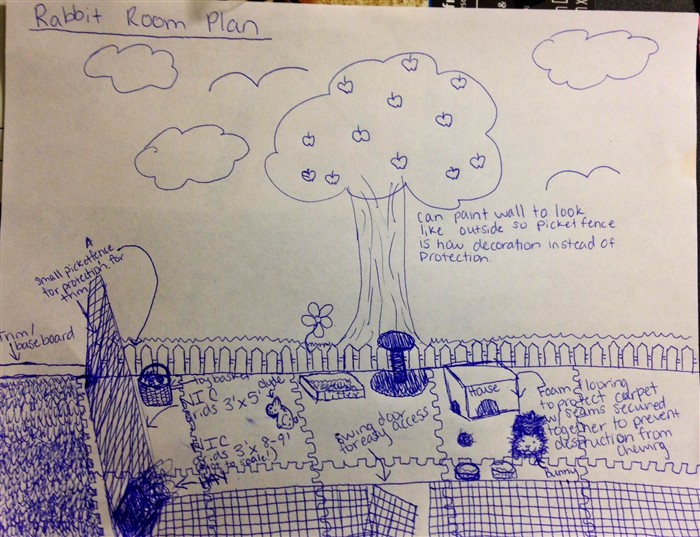 Rabbit Room Plan
can paint wall to look
like outside so picket fence
is how decoration instead of
protection.
Small picket fence
for protection for
trim
Trim/
baseboard
toy basket
NIC
grids 3'x5'
Clyde
NIC
grids 3'x 8-9'
(not to scale!)
HAY
swing door
for easy access
House
Foam flooring
to protect carpet
w/ seams secured
together to prevent
destruction from
chewing
Bunny